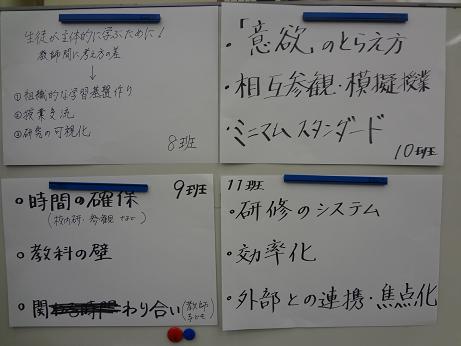 生徒が主体的に学ぶために!
教師間に考え方の差
↓
①組織的な学習基盤作り
②授業交流
③研究の可視化
8班
・「意欲」のとらえ方
・相互参観・模擬授業
・ミニマムスタンダード
10班
9班
・時間の確保
(校内研・参観など)
・教科の壁
・関わり合い(教師
11班
・研修のシステム
・効率化
・外部との連携・焦点化